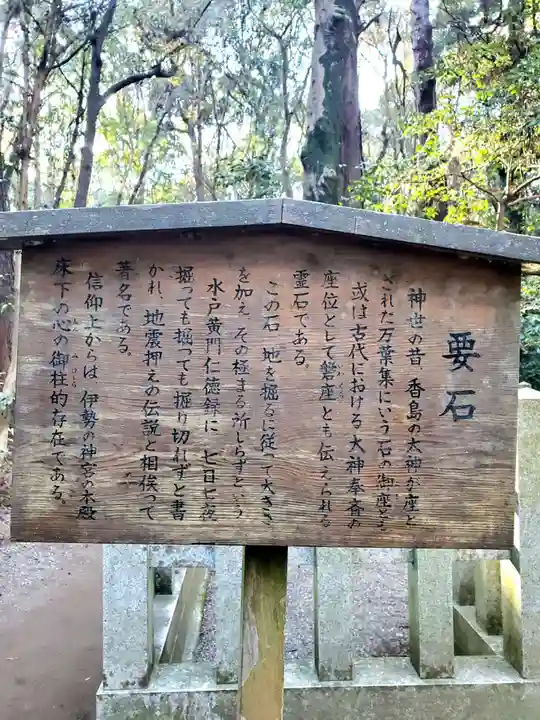 要石
神世の昔、香島の大神が座と
された万葉集にいう石の御座とも
或は古代における大神奉斎の
座位として磐座とも伝えられる
霊石である。
この石 地を掘るに従って大きさ
を加え、その極まる所しらずという
水戸黄門仁徳録に 七日七夜
掘っても掘っても掘り切れずと書
かれ、地震押えの伝説と相俟って
著名である。
信仰上からは 伊勢の神宮の本殿
床下の心の御柱的存在である。